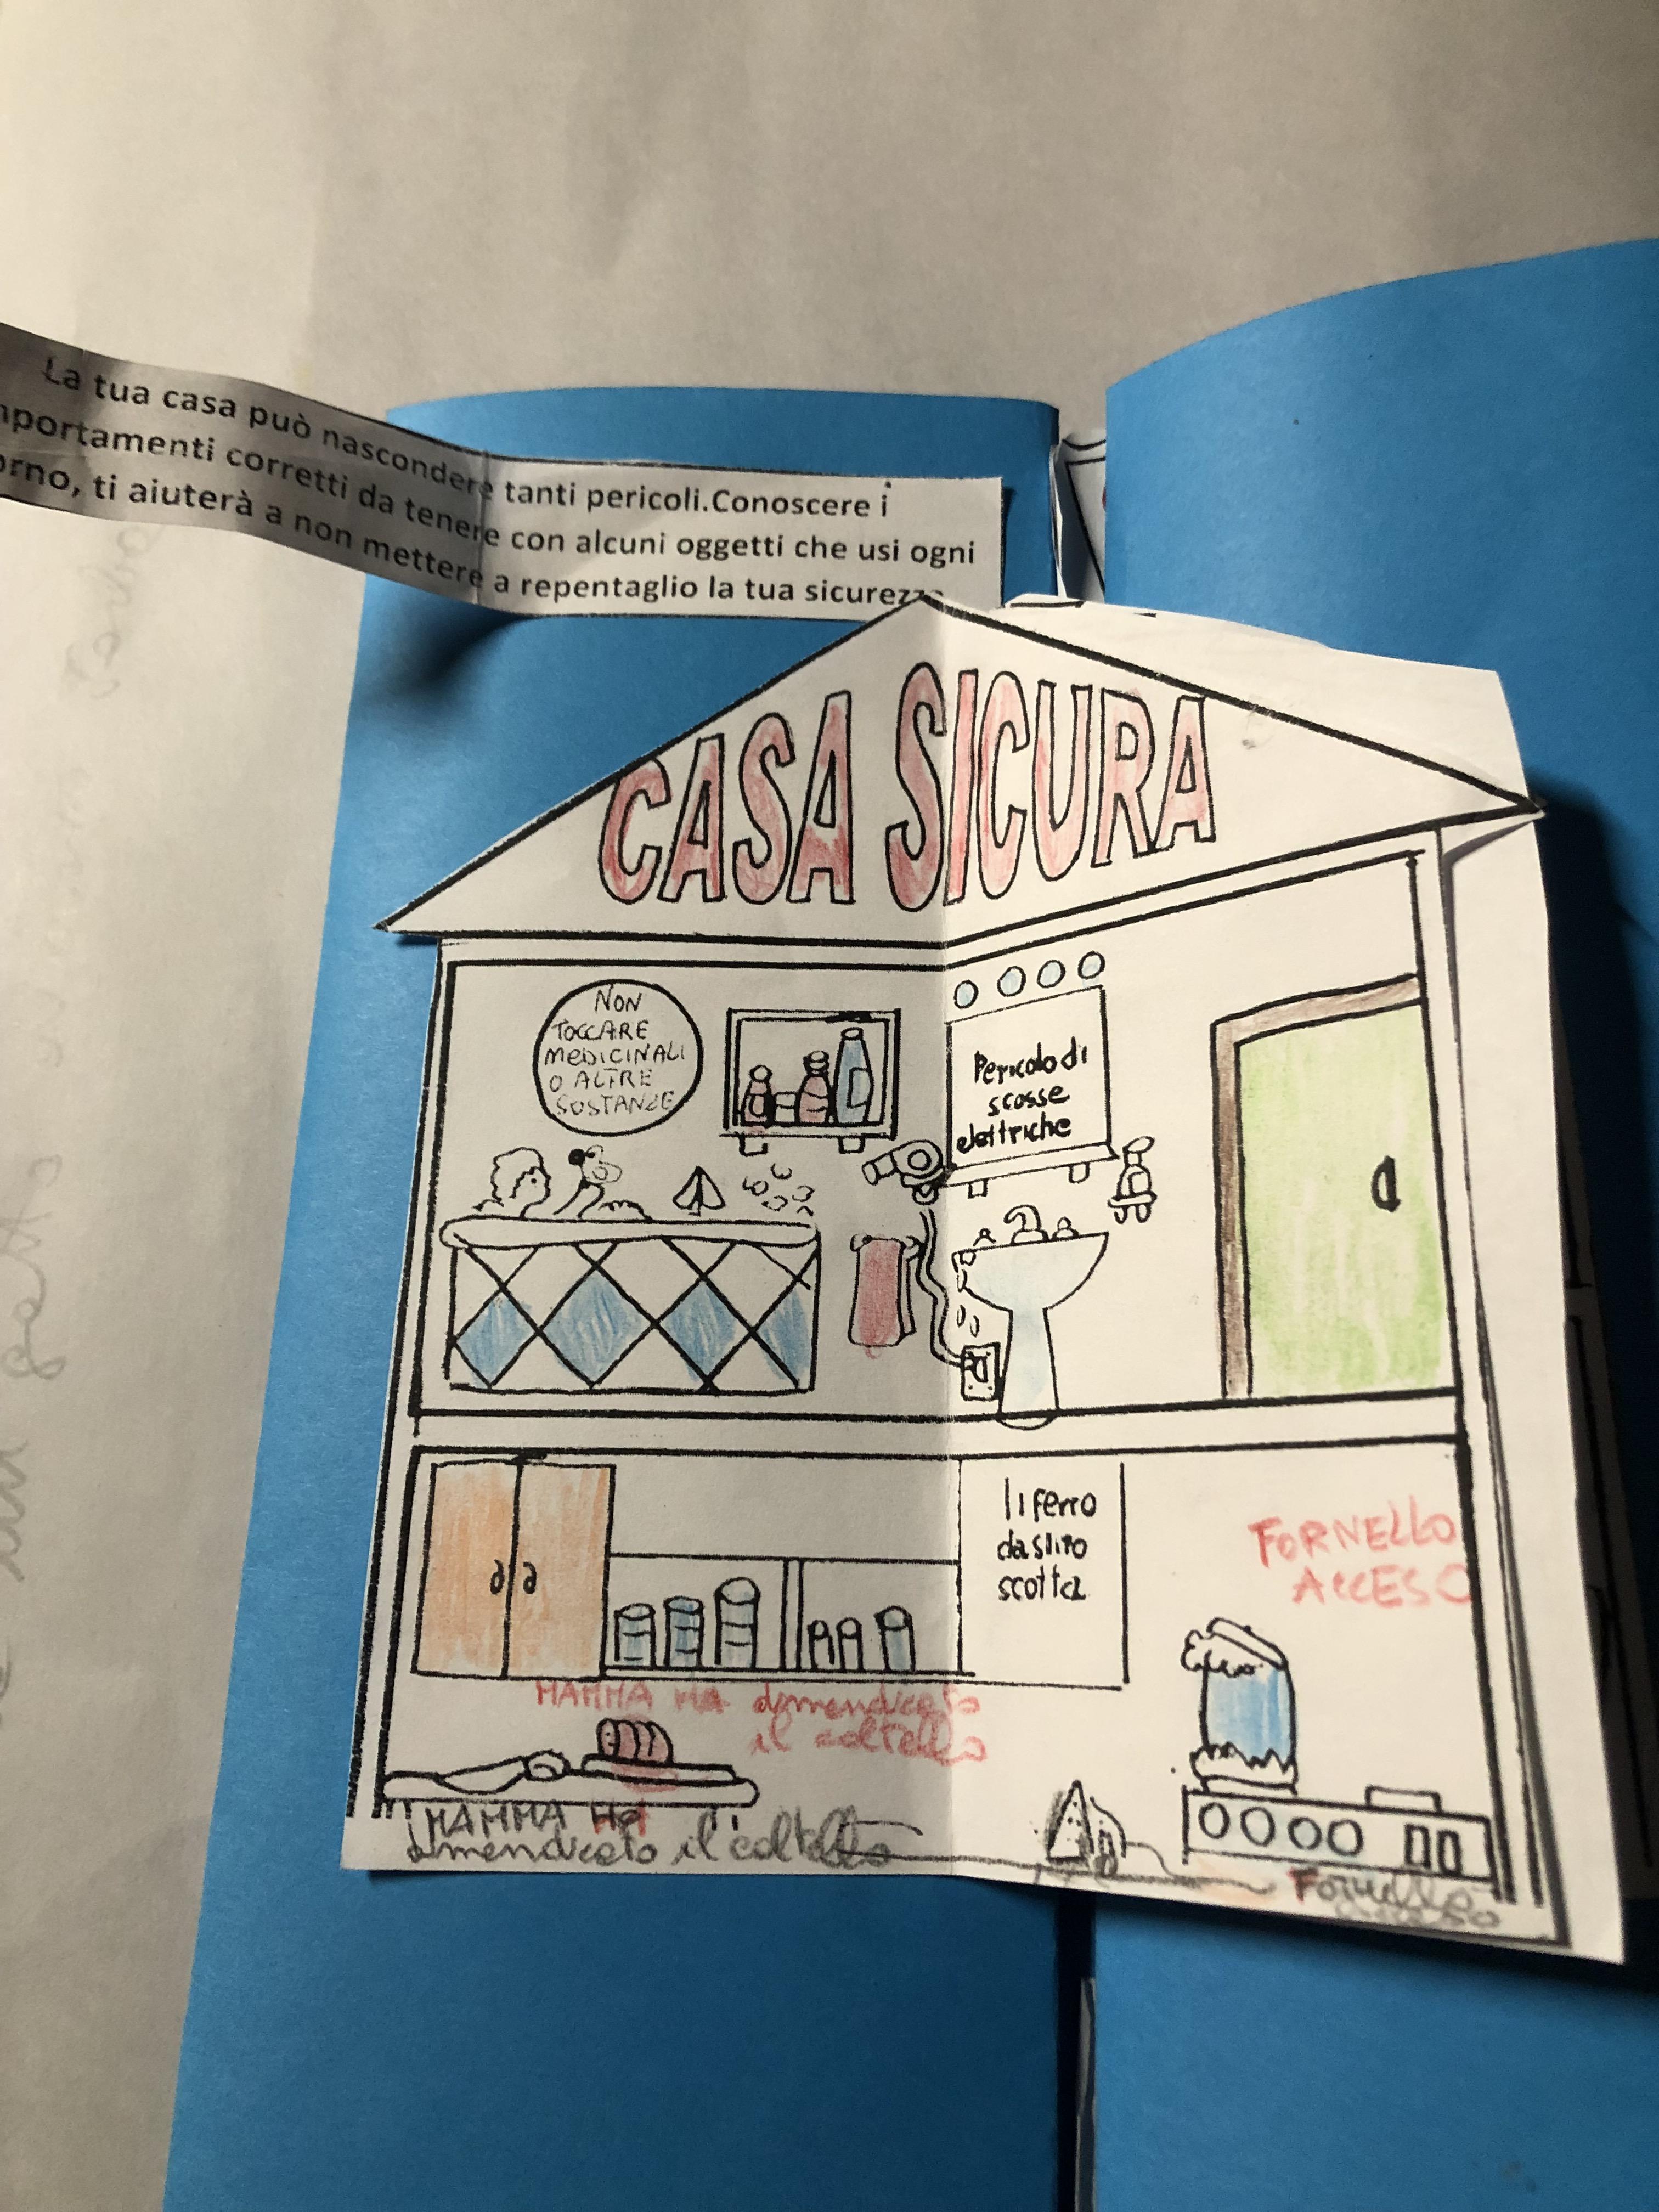 La tua casa può nascondere tanti pericoli.Conoscere i
mportamenti corretti da tenere con alcuni oggetti che usi ogni
orno, ti aiuterà a non mettere a repentaglio la tua sicurezz
CASA SICURA
NON
TOCCARE
MEDICINALI
O ALTRE
SOSTANZE
Pericolo di
scosse
elettriche
Il ferro
da stiro
scotta
FORNELLO
ACCESO
MAMMA HA dimenticato
il coltello
MAMMA HA
dimenticato il coltello
Fornello
acceso